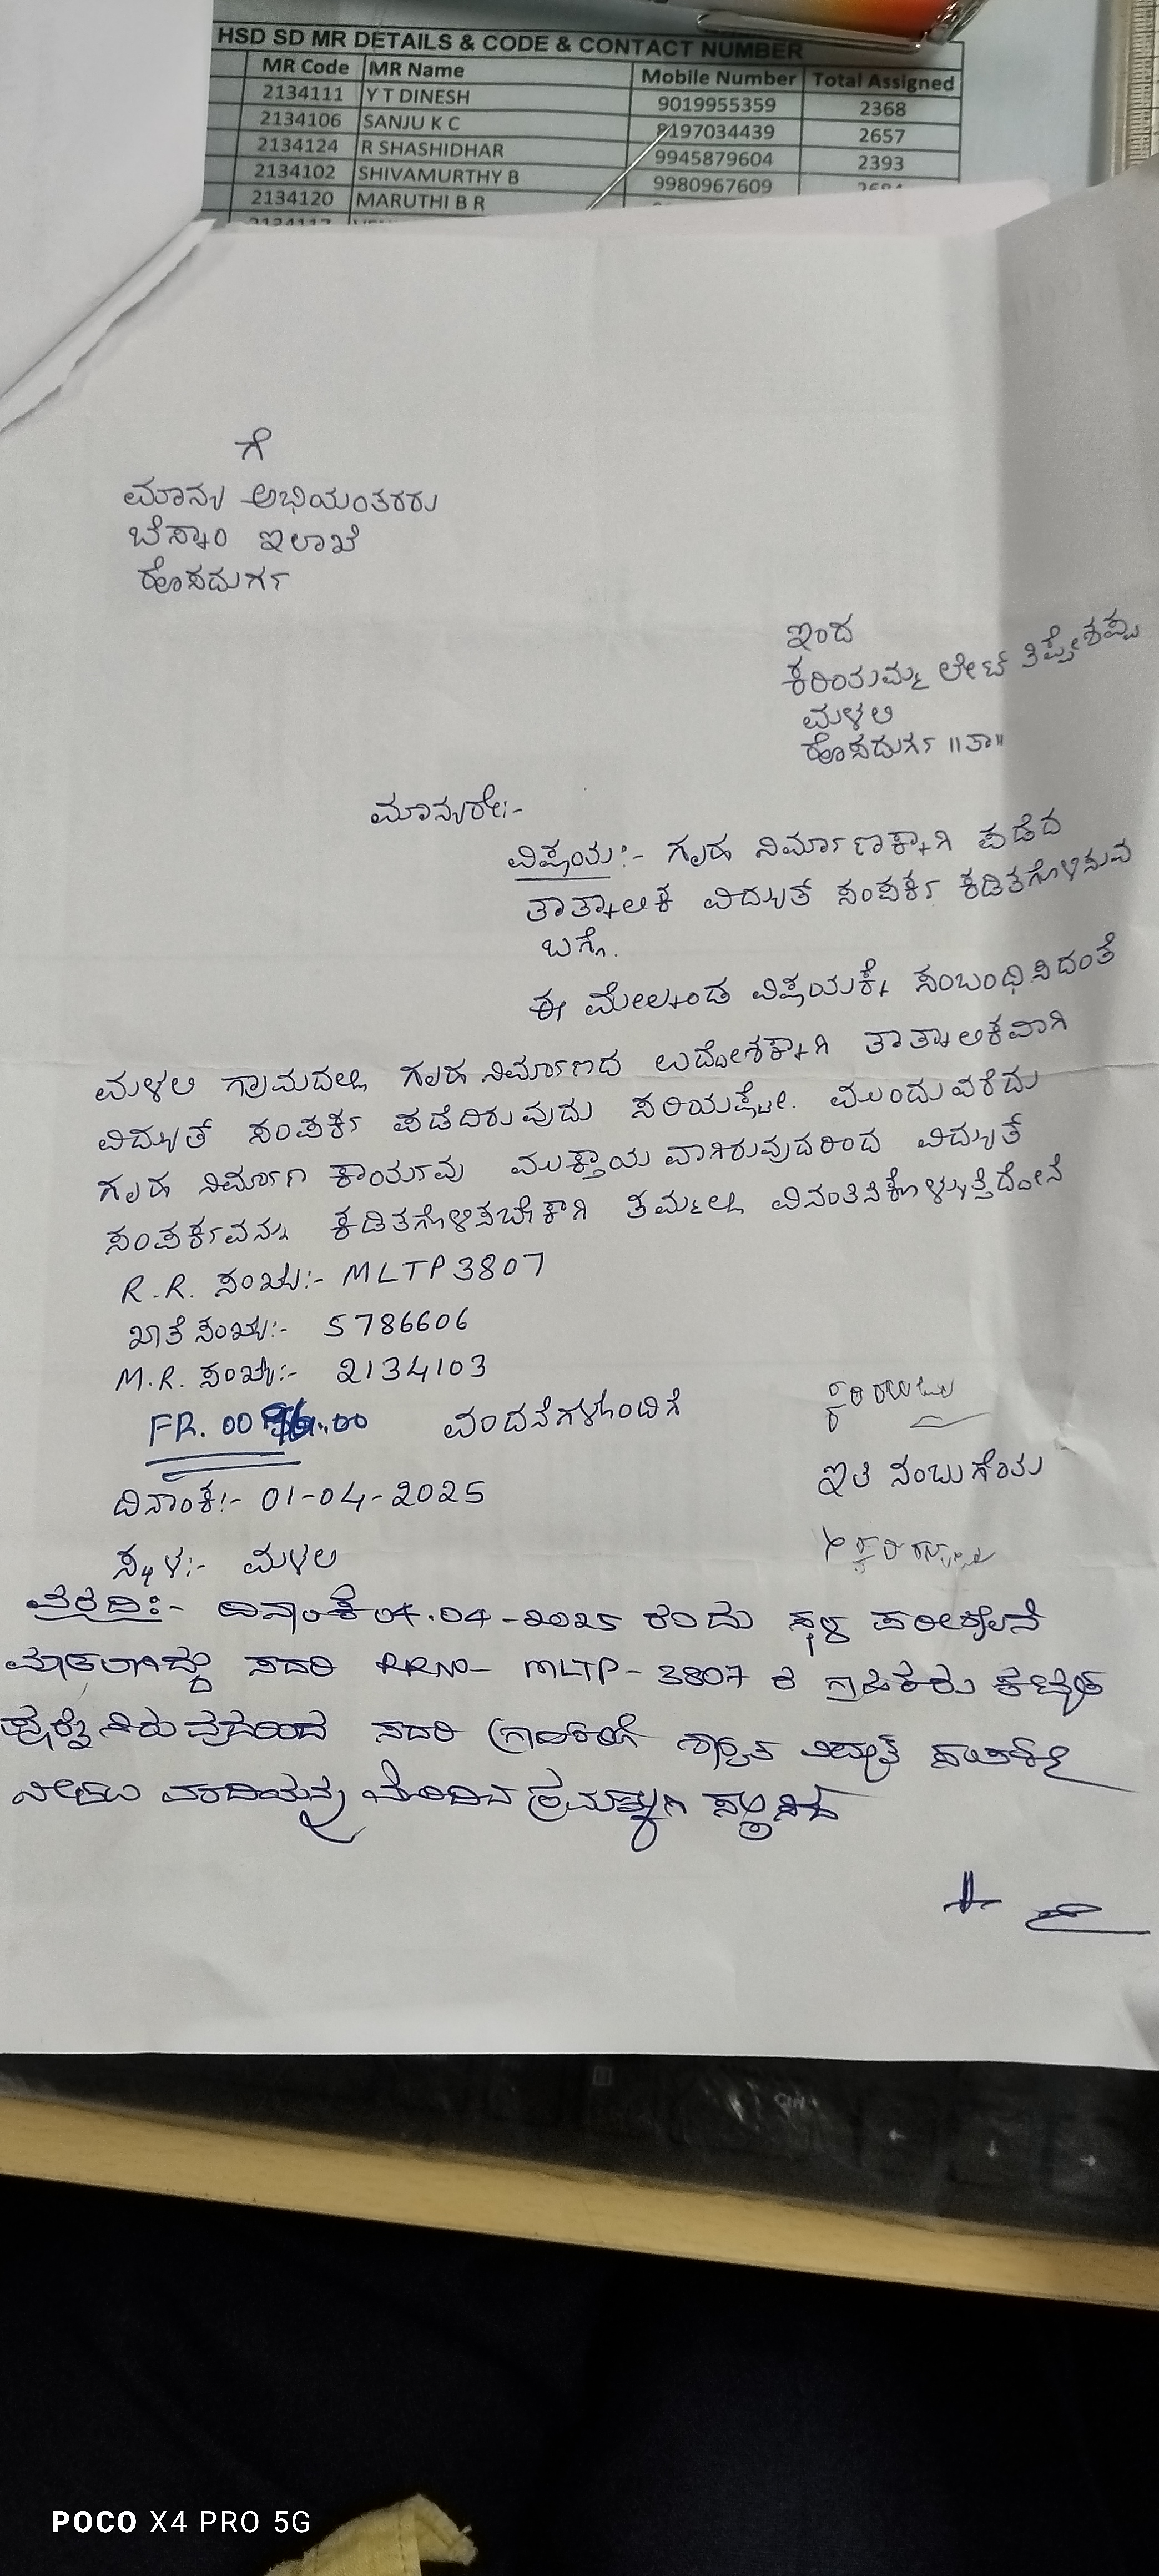 HSD SD MR DETAILS & CODE & CONTACT NUMBER
MR Code MR Name Mobile Number Total Assigned
2134111 Y T DINESH 9019955359 2368
2134106 SANJU K C 9197034439 2657
2134124 R SHASHIDHAR 9945879604 2393
2134102 SHIVAMURTHY B 9980967609
2134120 MARUTHI B R
ಗೆ
ಮಾನ್ಯ ಅಭಿಯಂತರರು
ಬೆಸ್ಕಾಂ ಇಲಾಖೆ
ಹೊಸದುರ್ಗ
ಇಂದ
ಕರಿಯಮ್ಮ ಲೇಟ್ ತಿಪ್ಪೇಶಪ್ಪ
ಮಳಲಿ
ಹೊಸದುರ್ಗ ॥ತಾ॥
ಮಾನ್ಯರೇ:-
ವಿಷಯ:- ಗೃಹ ನಿರ್ಮಾಣಕ್ಕಾಗಿ ಪಡೆದ
ತಾತ್ಕಾಲಿಕ ವಿದ್ಯುತ್ ಸಂಪರ್ಕ ಕಡಿತಗೊಳಿಸುವ
ಬಗ್ಗೆ.
ಈ ಮೇಲ್ಕಂಡ ವಿಷಯಕ್ಕೆ ಸಂಬಂಧಿಸಿದಂತೆ
ಮಳಲಿ ಗ್ರಾಮದಲ್ಲಿ ಗೃಹ ನಿರ್ಮಾಣದ ಉದ್ದೇಶಕ್ಕಾಗಿ ತಾತ್ಕಾಲಿಕವಾಗಿ
ವಿದ್ಯುತ್ ಸಂಪರ್ಕ ಪಡೆದಿರುವುದು ಸರಿಯಷ್ಟೇ. ಮುಂದುವರೆದು
ಗೃಹ ನಿರ್ಮಾಣ ಕಾರ್ಯವು ಮುಕ್ತಾಯವಾಗಿರುವುದರಿಂದ ವಿದ್ಯುತ್
ಸಂಪರ್ಕವನ್ನು ಕಡಿತಗೊಳಿಸಬೇಕಾಗಿ ತಮ್ಮಲ್ಲಿ ವಿನಂತಿಸಿಕೊಳ್ಳುತ್ತಿದ್ದೇನೆ
R.R. ಸಂಖ್ಯೆ:- MLTP3807
ಖಾತೆ ಸಂಖ್ಯೆ:- 5786606
M.R. ಸಂಖ್ಯೆ:- 2134103
FR. 00
ವಂದನೆಗಳೊಂದಿಗೆ
ದಿನಾಂಕ:- 01-04-2025
ಇತಿ ನಂಬುಗೆಯ
ಸ್ಥಳ:- ಮಳಲಿ
ವರದಿ:- ದಿನಾಂಕ 04-04-2025 ರಂದು ಸ್ಥಳ ಪರಿಶೀಲನೆ
ಮಾಡಲಾಗಿದ್ದು ಸದರಿ RRNO- MLTP-3807 ರ ಗ್ರಾಹಕರು ಕಟ್ಟಡ
ಸದರಿ ಗ್ರಾಹಕರಿಗೆ ಶಾಶ್ವತ ವಿದ್ಯುತ್
ವರದಿಯನ್ನು ಮುಂದಿನ ಕ್ರಮಕ್ಕಾಗಿ ಸಲ್ಲಿಸಿದೆ
POCO X4 PRO 5G